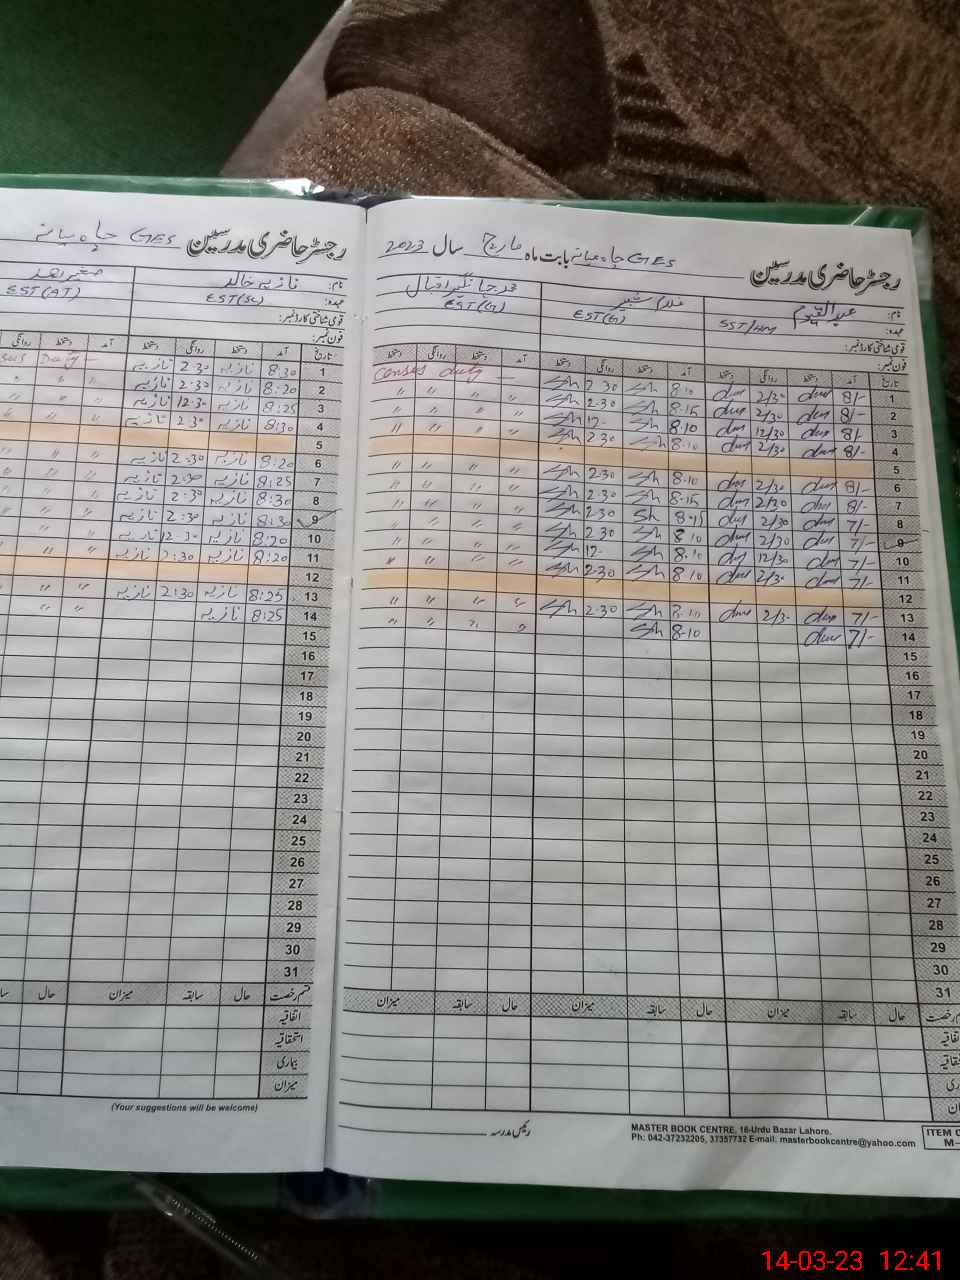 رجسٹر حاضری مدرسین GES چاہ میانہ بابت ماہ مارچ سال 2023
نام: عبدالقیوم
عہدہ: SST/HM EST(G) EST(G)
قومی شناختی کارڈ نمبر:
فون نمبر:
تاریخ آمد دستخط روانگی دستخط آمد دستخط روانگی دستخط آمد دستخط روانگی دستخط
1 8/- 2/30 8:10 2:30 censes duty
2 8/- 2/30 8:15 2:30 〃 〃 〃 〃
3 8/- 12/30 8:10 12- 〃 〃 〃 〃
4 8/- 2/30 8:10 2:30 〃 〃 〃 〃
5
6 8/- 2/30 8:10 2:30 〃 〃 〃 〃
7 8/- 2/30 8:15 2:30 〃 〃 〃 〃
8 7/- 2/30 8:15 2:30 〃 〃 〃 〃
9 7/- 2/30 8:10 2:30 〃 〃 〃 〃
10 7/- 12/30 8:10 12- 〃 〃 〃 〃
11 7/- 2/30 8:10 2:30 〃 〃 〃 〃
12
13 7/- 2/30 8:10 2:30 〃 〃 〃 〃
14 7/- 8:10 〃 〃 〃 〃
15
16
17
18
19
20
21
22
23
24
25
26
27
28
29
30
31
حال سابقہ میزان حال سابقہ میزان حال سابقہ میزان
رئیس مدرسہ
MASTER BOOK CENTRE, 16-Urdu Bazar Lahore.
Ph: 042-37232205, 37357732 E-mail: masterbookcentre@yahoo.com
رجسٹر حاضری مدرسین GES چاہ میانہ
نام: نازیہ خالد
عہدہ: EST(Sc) EST(AT)
قومی شناختی کارڈ نمبر:
فون نمبر:
تاریخ آمد دستخط روانگی دستخط آمد دستخط روانگی
1 8:30 نازیہ 2:30 نازیہ Duty
2 8:20 نازیہ 2:30 نازیہ 〃 〃
3 8:25 نازیہ 12:30 نازیہ 〃 〃
4 8:30 نازیہ 2:30 نازیہ 〃 〃
5
6 8:20 نازیہ 2:30 نازیہ 〃 〃
7 8:25 نازیہ 2:30 نازیہ 〃 〃
8 8:30 نازیہ 2:30 نازیہ 〃 〃
9 8:30 نازیہ 2:30 نازیہ 〃 〃
10 8:20 نازیہ 12:30 نازیہ 〃 〃
11 8:20 نازیہ 2:30 نازیہ 〃 〃
12
13 8:25 نازیہ 2:30 نازیہ 〃 〃
14 8:25 نازیہ 〃 〃
15
16
17
18
19
20
21
22
23
24
25
26
27
28
29
30
31
قسم رخصت حال سابقہ میزان حال
اتفاقیہ
استحقاقیہ
بیماری
میزان
(Your suggestions will be welcome)
14-03-23 12:41